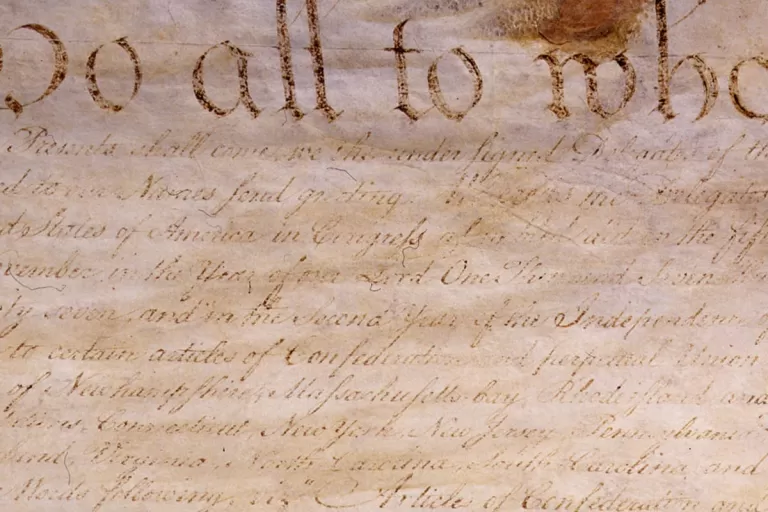 To all to who
Presents shall come, we the under signed Delegates of th
d to our Names send greeting. Whereas the Delegat
d States of America in Congress assembled did on the fift
ovember in the Year of our Lord One Thousand Seven Hun
ty seven, and in the Second Year of the Independence of
to certain articles of Confederation and perpetual Union
of Newhampshire, Massachusetts-bay, Rhodeisland and
ations, Connecticut, New York, New Jersey, Pennsylvania
land, Virginia, North Carolina, South Carolina and
Words following, viz. "Articles of Confederation and